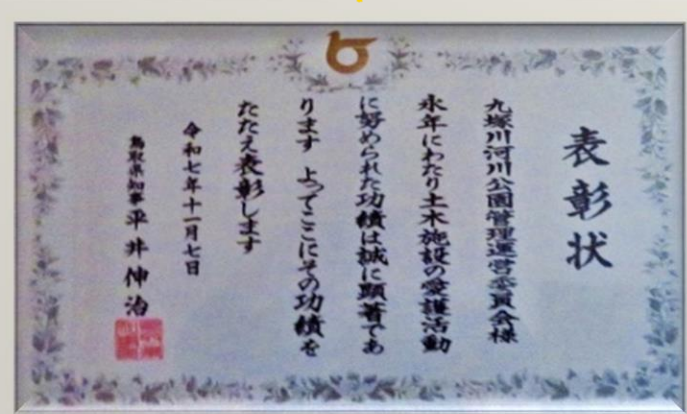 表彰状
九塚川河川公園管理運営委員会様
永年にわたり土木施設の愛護活動
に努められた功績は誠に顕著であ
ります よってここにその功績を
たたえ表彰します
令和七年十一月七日
鳥取県知事 平井伸治